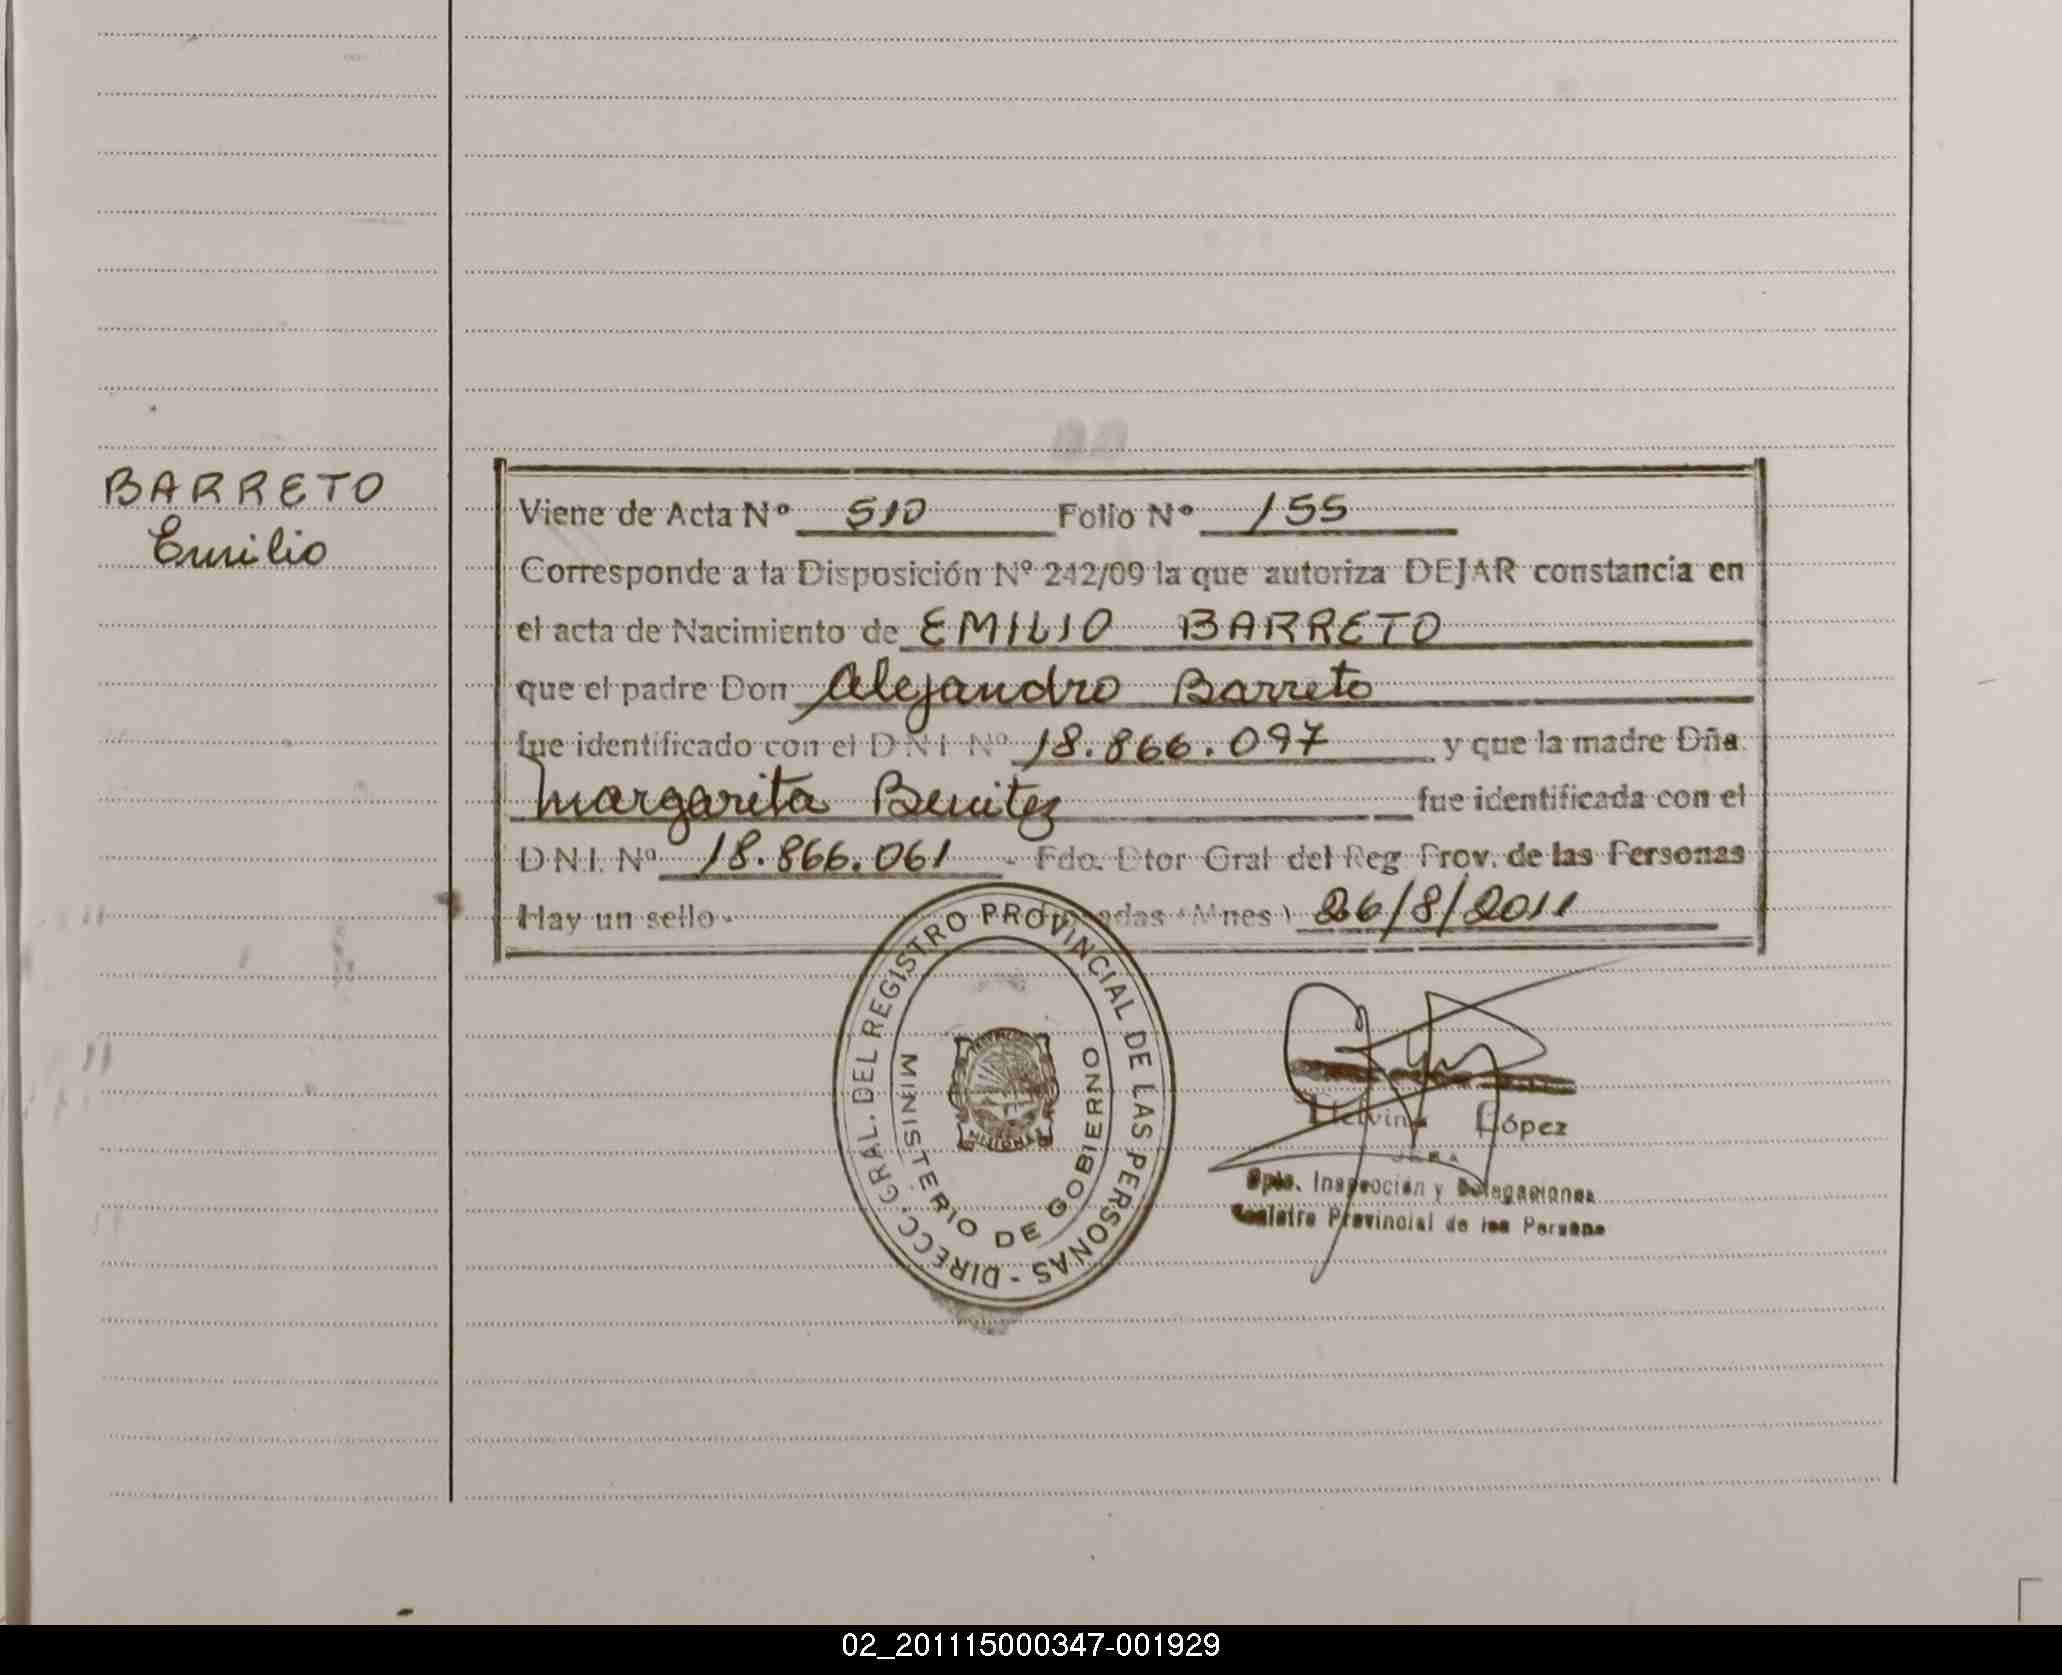 BARRETO
Emilio
Viene de Acta Nº 510 Folio Nº 155
Corresponde a la Disposición Nº 242/09 la que autoriza DEJAR constancia en
el acta de Nacimiento de EMILIO BARRETO
que el padre Don Alejandro Barreto
fue identificado con el D.N.I. Nº 18.866.097 y que la madre Dña.
Margarita Benitez fue identificada con el
D.N.I. Nº 18.866.061 - Fdo. Dtor Gral del Reg Prov. de las Personas
Hay un sello - Mnes) 26/8/2011
DIRECC. GRAL. DEL REGISTRO PROVINCIAL DE LAS PERSONAS -
MINISTERIO DE GOBIERNO
MISIONES
López
Dpto. Inspección y Delegaciones
Registro Provincial de las Persona
02_201115000347-001929